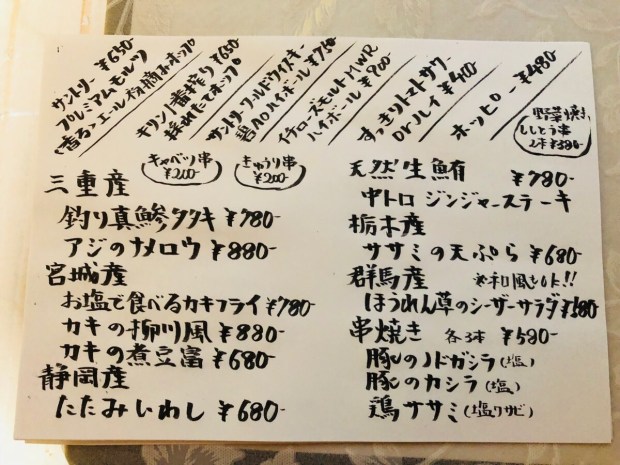 サントリー ¥650
プレミアムモルツ
キリン一番搾り ¥650
採れたてホップ
サントリーワールドウイスキー
碧AOハイボール ¥750
イチローズモルトMWR
ハイボール ¥900
すっきりトマトサワー
orハイ ¥400
ホッピー ¥480
野菜焼き
ししとう串
2本¥380
キャベツ串
¥200
きゅうり串
¥200
三重産
釣り真鯵タタキ ¥780-
アジのナメロウ ¥880-
宮城産
お塩で食べるカキフライ ¥780-
カキの柳川風 ¥880-
カキの煮豆富 ¥680-
静岡産
たたみいわし ¥680-
天然生鮪 ¥780-
中トロ ジンジャーステーキ
栃木産
ササミの天ぷら ¥680-
群馬産
ほうれん草のシーザーサラダ ¥580
串焼き 各3本 ¥590-
豚のノドガシラ(塩)
豚のカシラ(塩)
鶏ササミ(塩ワサビ)